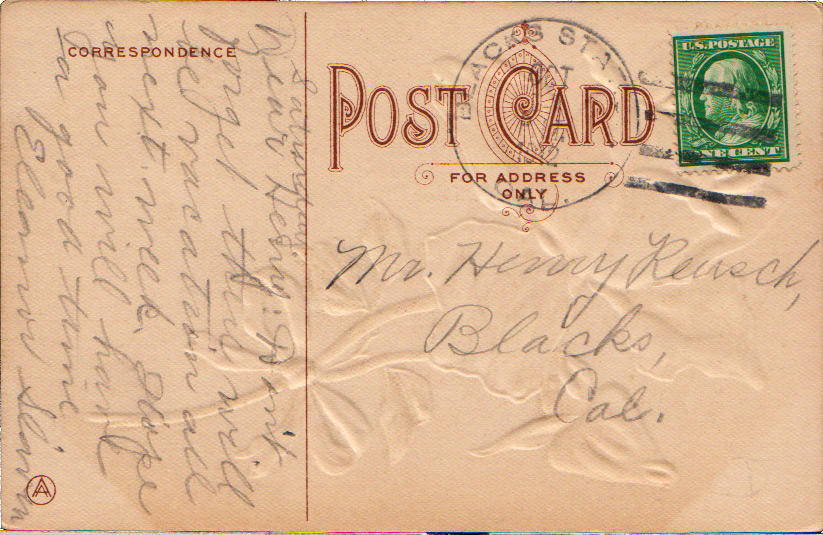 CORRESPONDENCE
POST CARD
FOR ADDRESS
ONLY
BLACKS STA.
OCT
CAL.
U.S. POSTAGE
ONE CENT
Mr. Henry Reusch,
Blacks,
Cal.
Saturday,
Dear Henry: Don't
forget there will
be vacation all
next week. Hope
you will have
a good time
Eleanor Slavin
AA